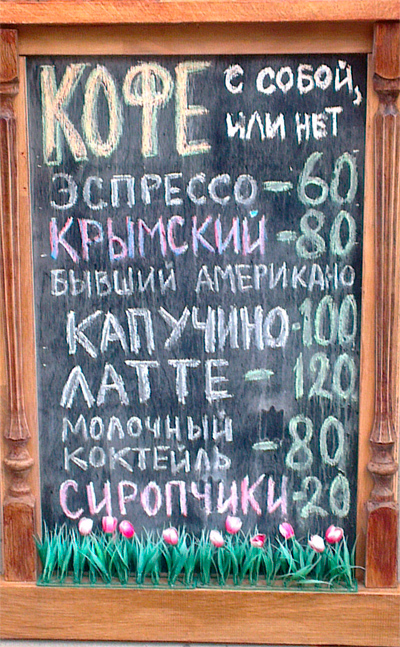 КОФЕ с собой,
или нет
ЭСПРЕССО - 60
КРЫМСКИЙ - 80
БЫВШИЙ АМЕРИКАНО
КАПУЧИНО - 100
ЛАТТЕ - 120
МОЛОЧНЫЙ
КОКТЕЙЛЬ - 80
СИРОПЧИКИ - 20